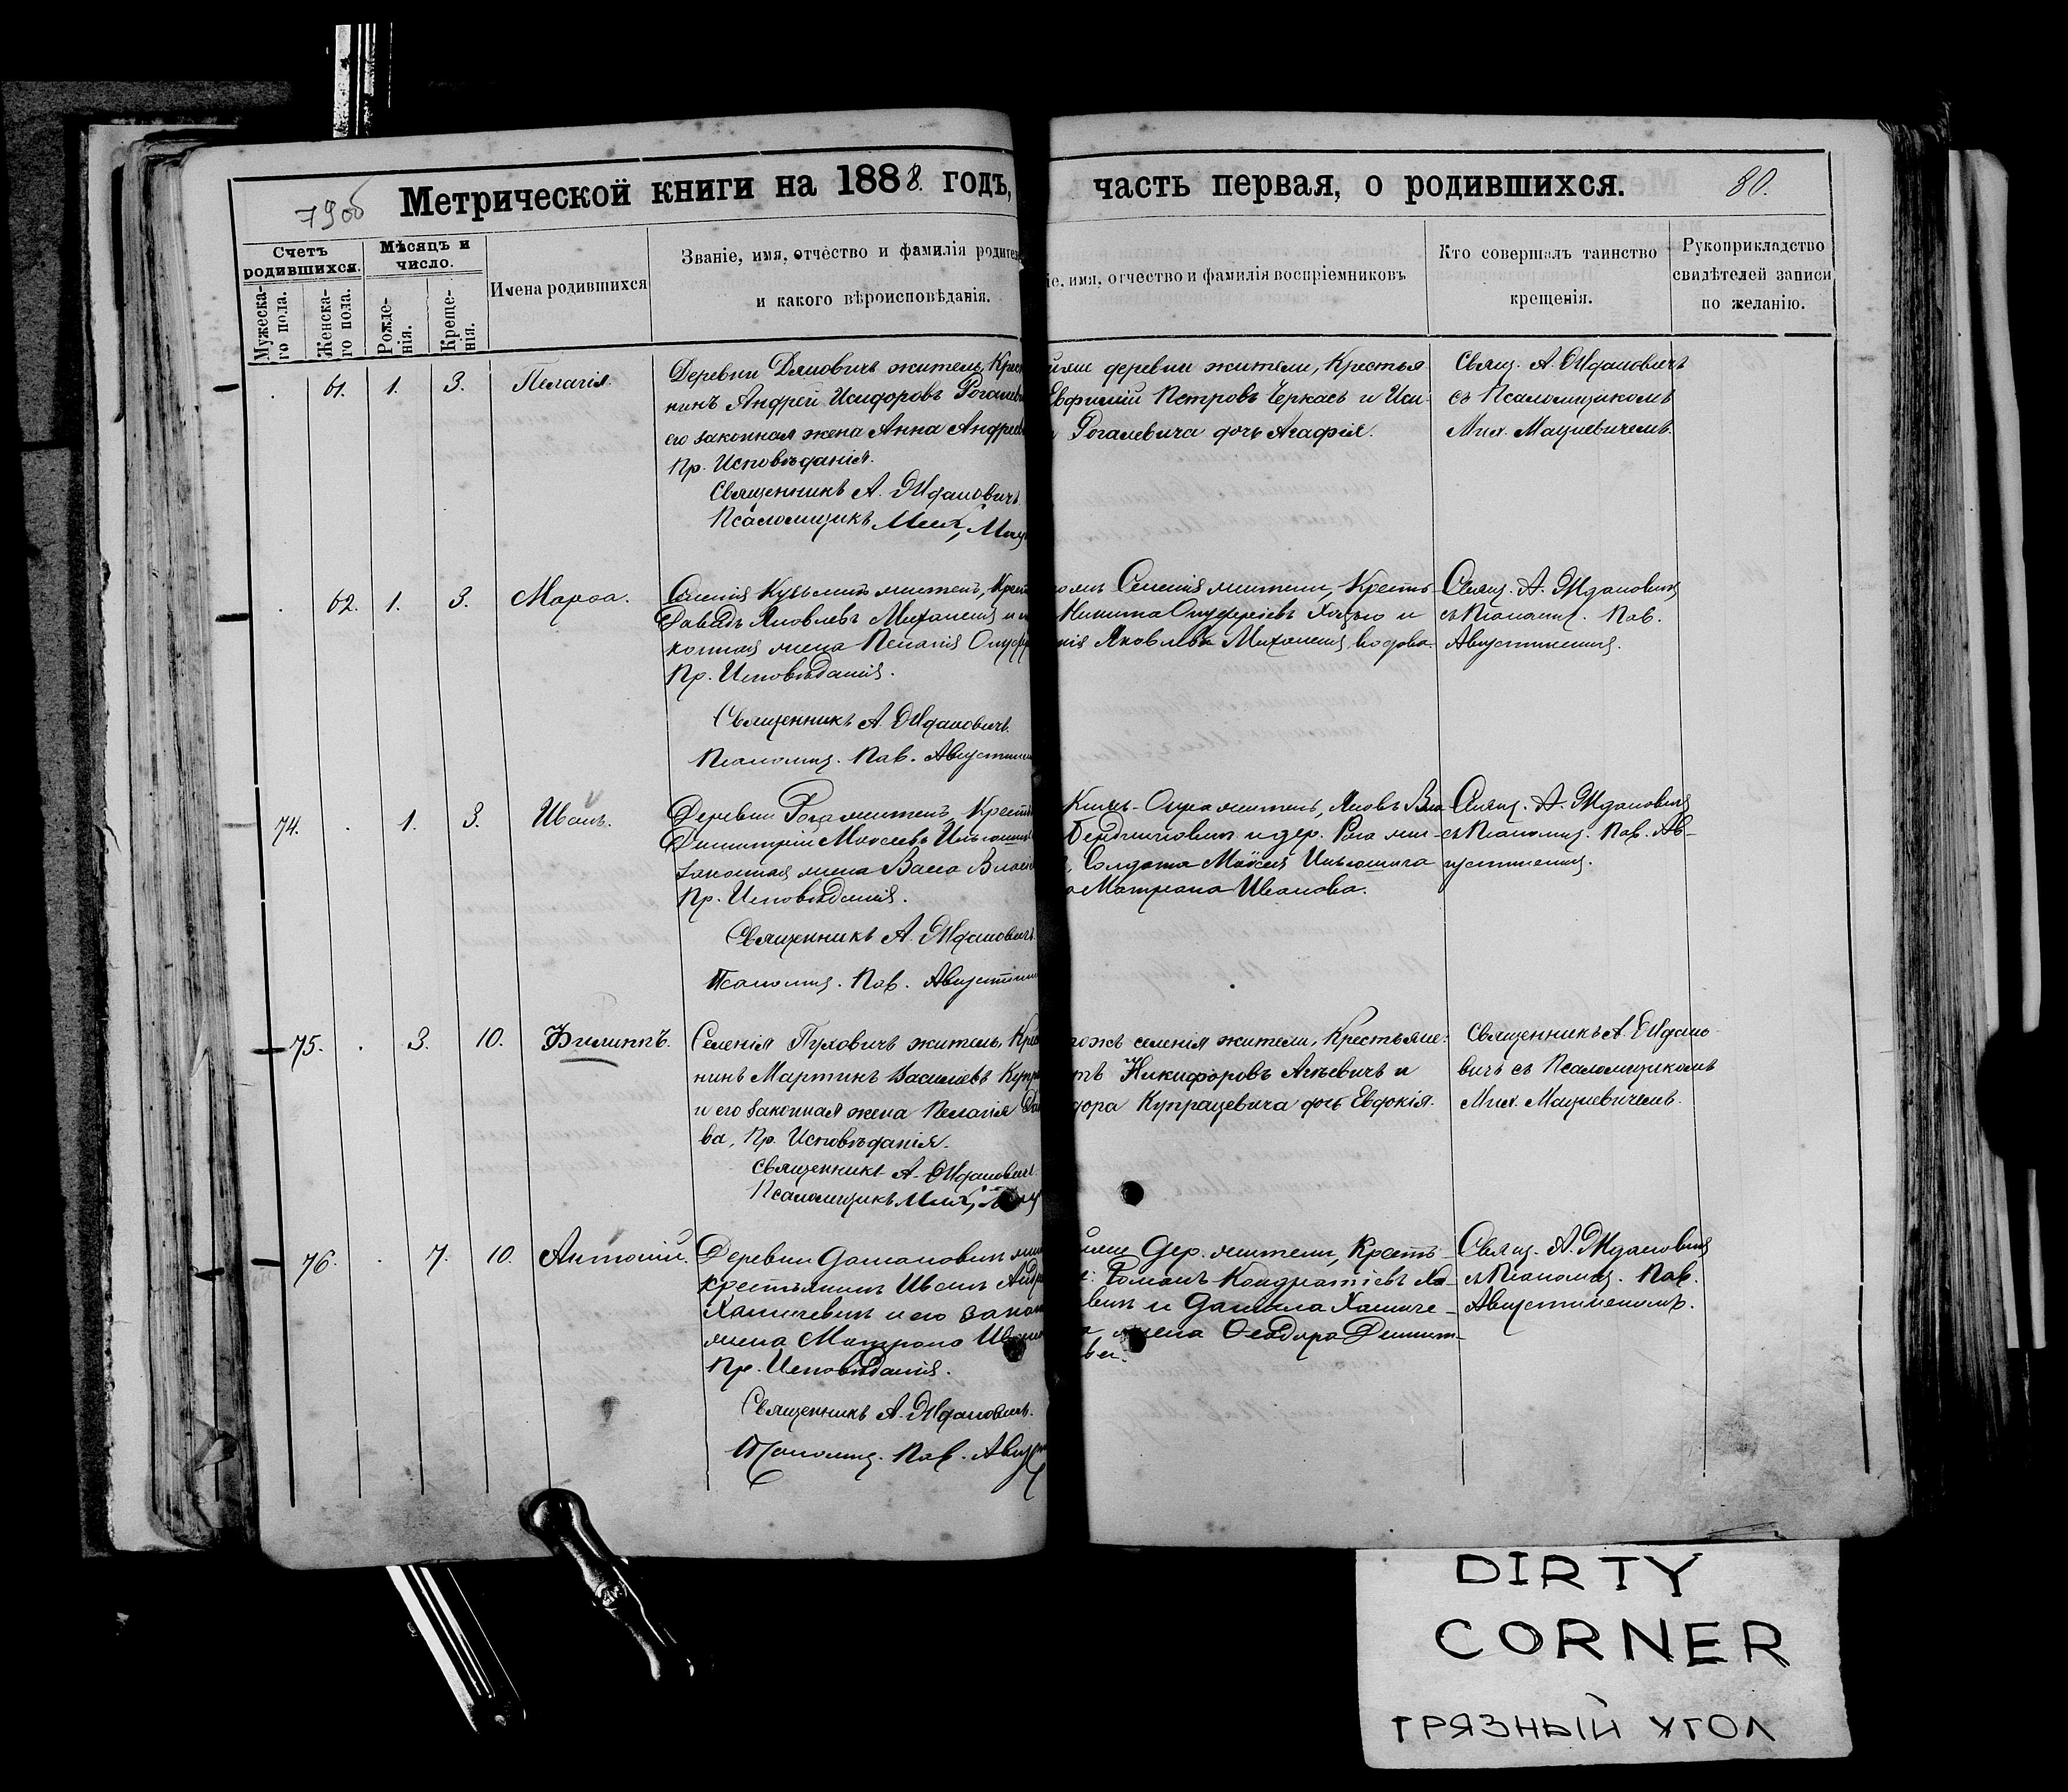 79об
Метрической книги на 1888. годъ,
часть первая, о родившихся.
80.
Счетъ родившихся.
Мужеска-го пола.
Женска-го пола.
Мѣсяцъ и число.
Рожде-нія.
Креще-нія.
Имена родившихся
Званіе, имя, отчество и фамилія родите
и какого вѣроисповѣданія.
іе, имя, отчество и фамилія воспріемниковъ
Кто совершалъ таинство
крещенія.
Рукоприкладство
свидѣтелей записи
по желанію.
61. 1. 3. Пелагія.
Деревни житель, Крес
нинъ Андрей Исидоровъ Рогалев
его законная жена Анна Андрее
Пр. Исповѣданія.
Священникъ А. Ждановичъ
Псаломщикъ Мих. Мац
деревни жители, Крестья
Евфимій Петровъ Черкасъ и Иси-
Рогалевича дочь Агафія.
Свящ. А. Ждановичъ
съ Псаломщикомъ
Мих. Мацкевичемъ.
62. 1. 3. Марѳа.
Селенія житель, Крест
Давидъ Яковлевъ и
конная жена Пелагія Онуфр
Пр. Исповѣданія.
Священникъ А. Ждановичъ.
Псаломщ. Пав. Августин
Селенія жители, Кресть-
Никита Онуфріевъ и
нія Яковлева вдова.
Свящ. А. Ждановичъ
съ Псаломщ. Пав.
74. 1. 3. Иванъ.
Деревни Рога житель, Крест
Димитрій Моисеевъ
законная жена Васса Власо
Пр. Исповѣданія.
Священникъ А. Ждановичъ.
Псаломщ. Пав. Августин
житель, Яковъ Вла-
и дер. Рога жи-
Солдата Моисея
Матрона Иванова.
Свящ. А. Ждановичъ
съ Псаломщ. Пав. Ав-
75. 3. 10. Филиппъ.
Селенія Пуховичъ житель, Кре
нинъ Мартинъ Васильевъ Купр
и его законная жена Пелагія Да
ва, Пр. Исповѣданія.
Священникъ А. Ждановичъ.
Псаломщикъ Мих.
гожъ селенія жители, Крестьяне:
Никифоровъ Агѣевичъ и
дора Купрацевича дочь Евдокія.
Священникъ А. Ждано-
вичъ съ Псаломщикомъ
Мих. Мацкевичемъ.
76. 7. 10. Антоній.
Деревни Дамановичъ жи
крестьянинъ Иванъ Андр
Хамичевичъ и его закон
жена Матрона Ив
Пр. Исповѣданія.
Священникъ А. Ждановичъ.
Псаломщ. Пав. Авгус
Дер. жители, Кресть-
Романъ Кондратіевъ Ха-
вичъ и Данила Хамиче-
жена Ѳеодора Димит-
ва.
Свящ. А. Ждановичъ
съ Псаломщ. Пав.
Августиновичемъ.
DIRTY
CORNER
ГРЯЗНЫЙ УГОЛ